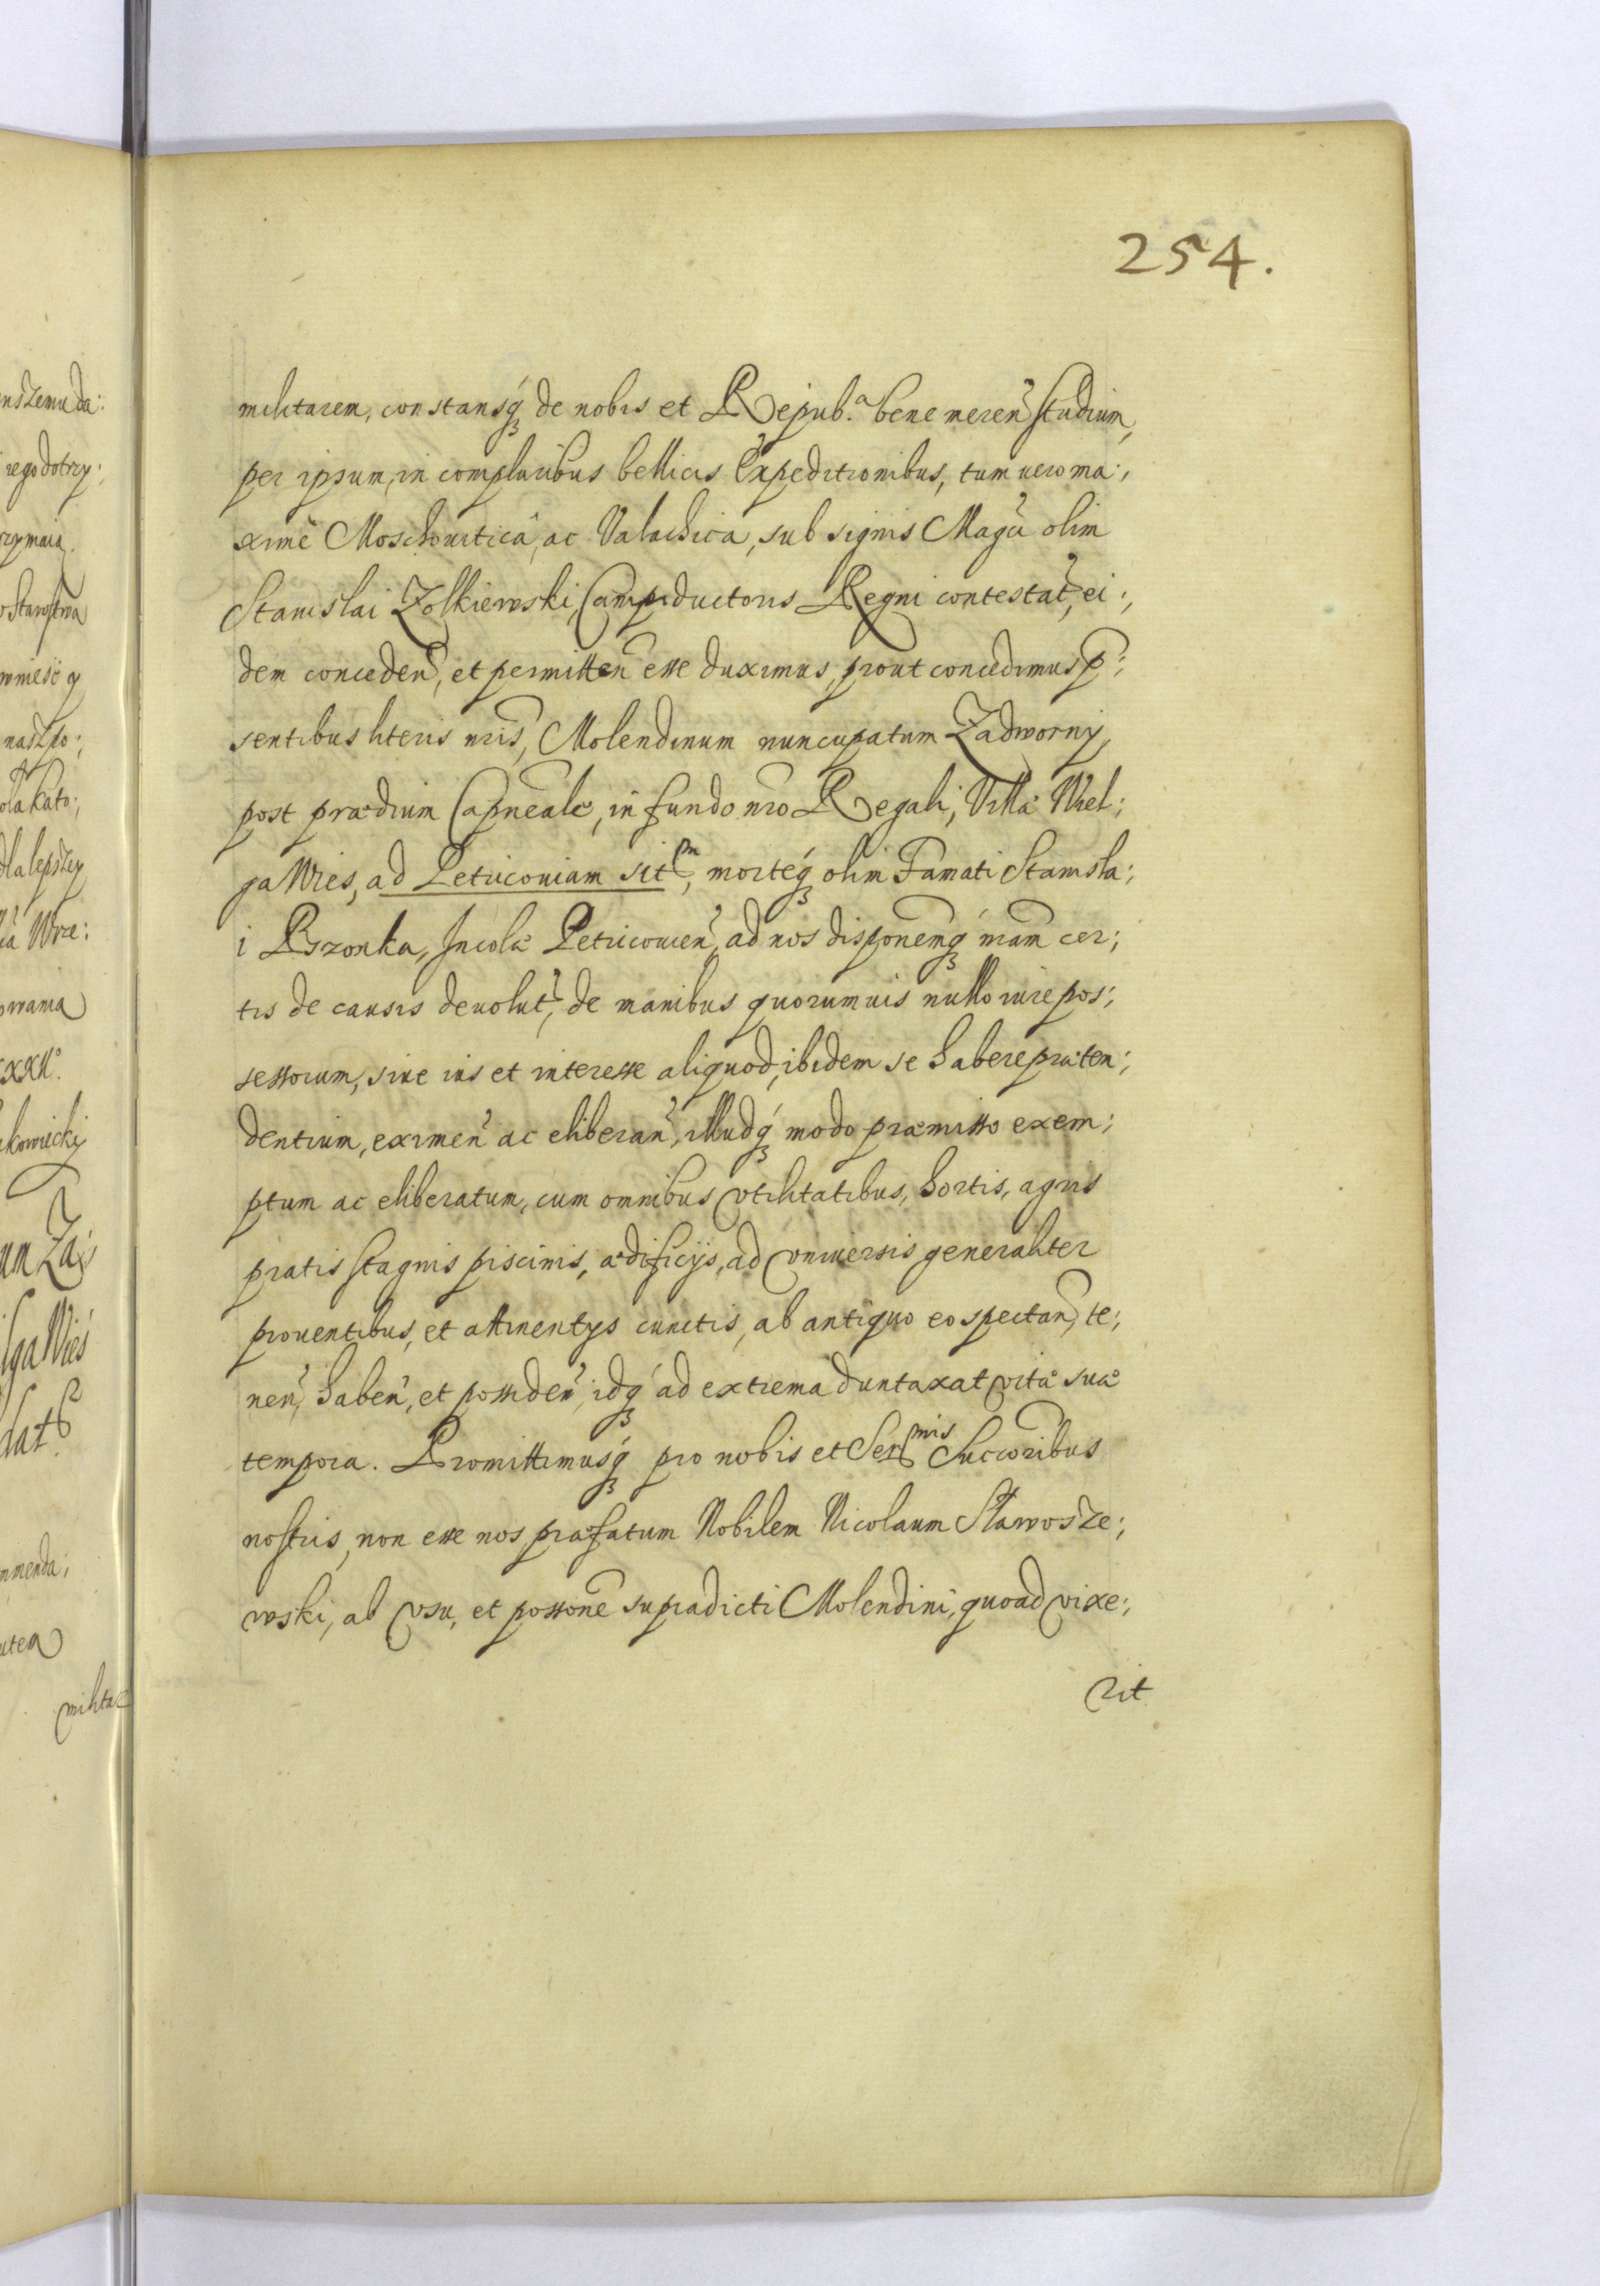 254.
militarem, constansq́ꝫ de nobis et Repub.ᵃ bene meren̄ studium,
per ipsum, in compluribus bellicis Expeditionibus, tum uero ma:,
ximè Moschouiticâ, ac Valachica, sub signis Magci olim
Stanislai Zołkiewski, Campiductoris Regni contestat̄, ei:,
dem conceden̄, et permitten̄ esse duximus, prout concedimus p̄:,
sentibus literis nris̄, Molendinum nuncupatum Zadworny,
post prædium Capneale, in fundo nrō Regali, Villæ Wiel:,
ga Wies, ad Petricouiam sitᵐ, morteq́ꝫ olim Famati Stanisla:,
i Pszonka, Incolæ Petricouien̄, ad nos disponemq́ꝫ nrām cer:,
tis de causis deuolut̄, de manibus quorumuis nullo iure pos:,
sessorum, siue ius et interesse aliquod, ibidem se habere præten:,
dentium, eximen̄ ac eliberan̄, illudq́ꝫ modo præmisso exem:,
ptum ac eliberatum, cum omnibus vtilitatibus, hortis, agris
pratis stagnis piscinis, ædificijs, ad vniuersis generaliter
prouentibus, et attinentijs cunctis, ab antiquo eo spectan̄, te:,
nen̄, haben̄, et possiden̄, idq́ꝫ ad extrema duntaxat vitæ suæ
tempora. Promittimusq́ꝫ pro nobis et Serᵐⁱˢ Succoribus
nostris, non esse nos præfatum Nobilem Nicolaum Sławosze:,
wski, ab vsu, et possone supradicti Molendini, quoad vixe:,
rit